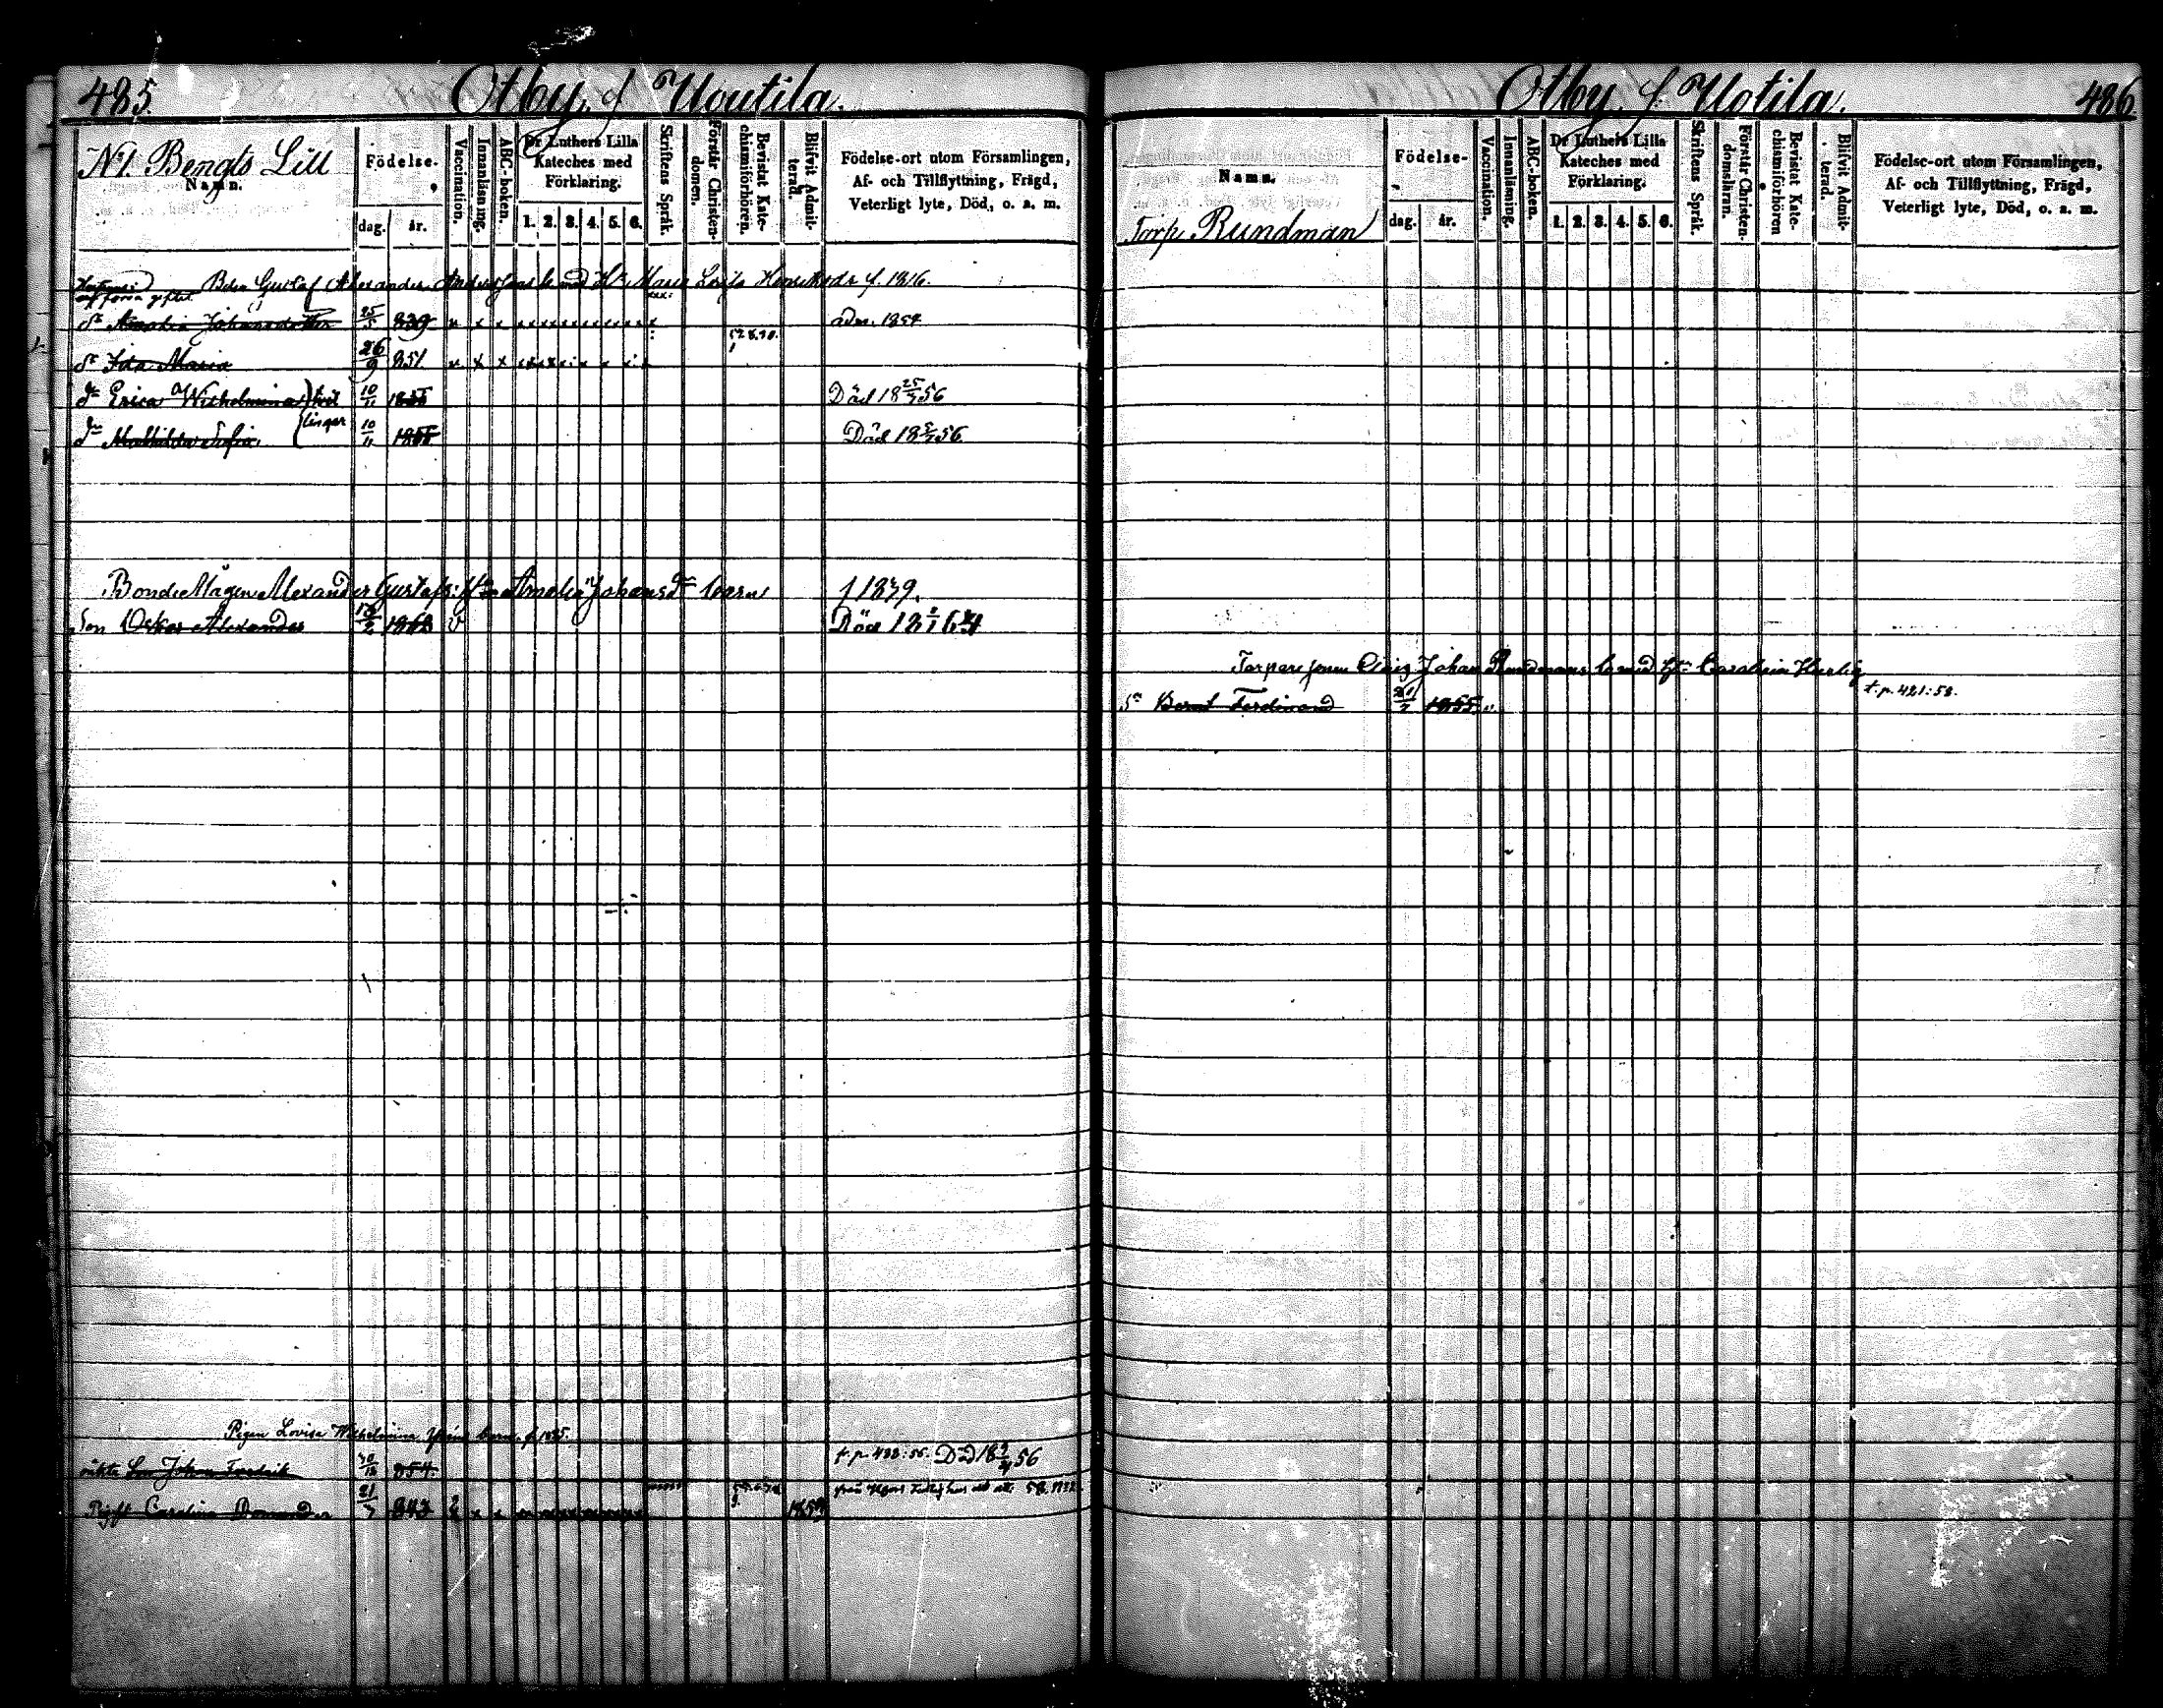 485. Otby, f Uoutila.
N 1. Bengts Lill
Namn.
Födelse.
dag. år.
Vaccination.
Innanläsning.
ABC-boken.
Dr Luthers Lilla
Kateches med
Förklaring.
1. 2. 3. 4. 5. 6.
Skriftens Språk.
Förstår Christen-
domen.
Bevistat Kate-
chismiförhören.
Blifvit Admit-
terad.
Födelse-ort utom Församlingen,
Af- och Tillflyttning, Frägd,
Veterligt lyte, Död, o. s. m.
af förra giftet Bdn Gustaf Alexander Maria Lovisa f. 1816.
Dr Amalia Johansdotter 25/5 839 adm. 1854
Dr Ida Maria 26/9 851.
Dr Erica Wilhelmina 10/11 1855 Död 18 25/7 56
Dr Mathilda Sofia 10/11 1855 Död 18 5/7 56
tvil
lingar
Bonde Mågen Alexander Gustafs: Amalia Johansdr barn f 1839.
Son Oskar Alexander 1863 Död 18 64
Pigan Lovisa Wilhelmina barn f. 1835.
oäkta Son Johan Fredrik 854. t. p. 488: 56. Död 18 56
Carolina 21/7 843 1859
486 Otby, f. Uotila.
Namn.
Torp Rundman
Födelse-
dag. år.
Vaccination.
Innanläsning.
ABC-boken.
Dr Luthers Lilla
Kateches med
Förklaring.
1. 2. 3. 4. 5. 6.
Skriftens Språk.
Förstår Christen-
domsläran.
Bevistat Kate-
chismiförhören
Blifvit Admit-
terad.
Födelse-ort utom Församlingen,
Af- och Tillflyttning, Frägd,
Veterligt lyte, Död, o. s. m.
Torpare sonen Johan Rundmans b. med Carolina
Sn Bernt Ferdinand 1855. t. p. 421: 58.